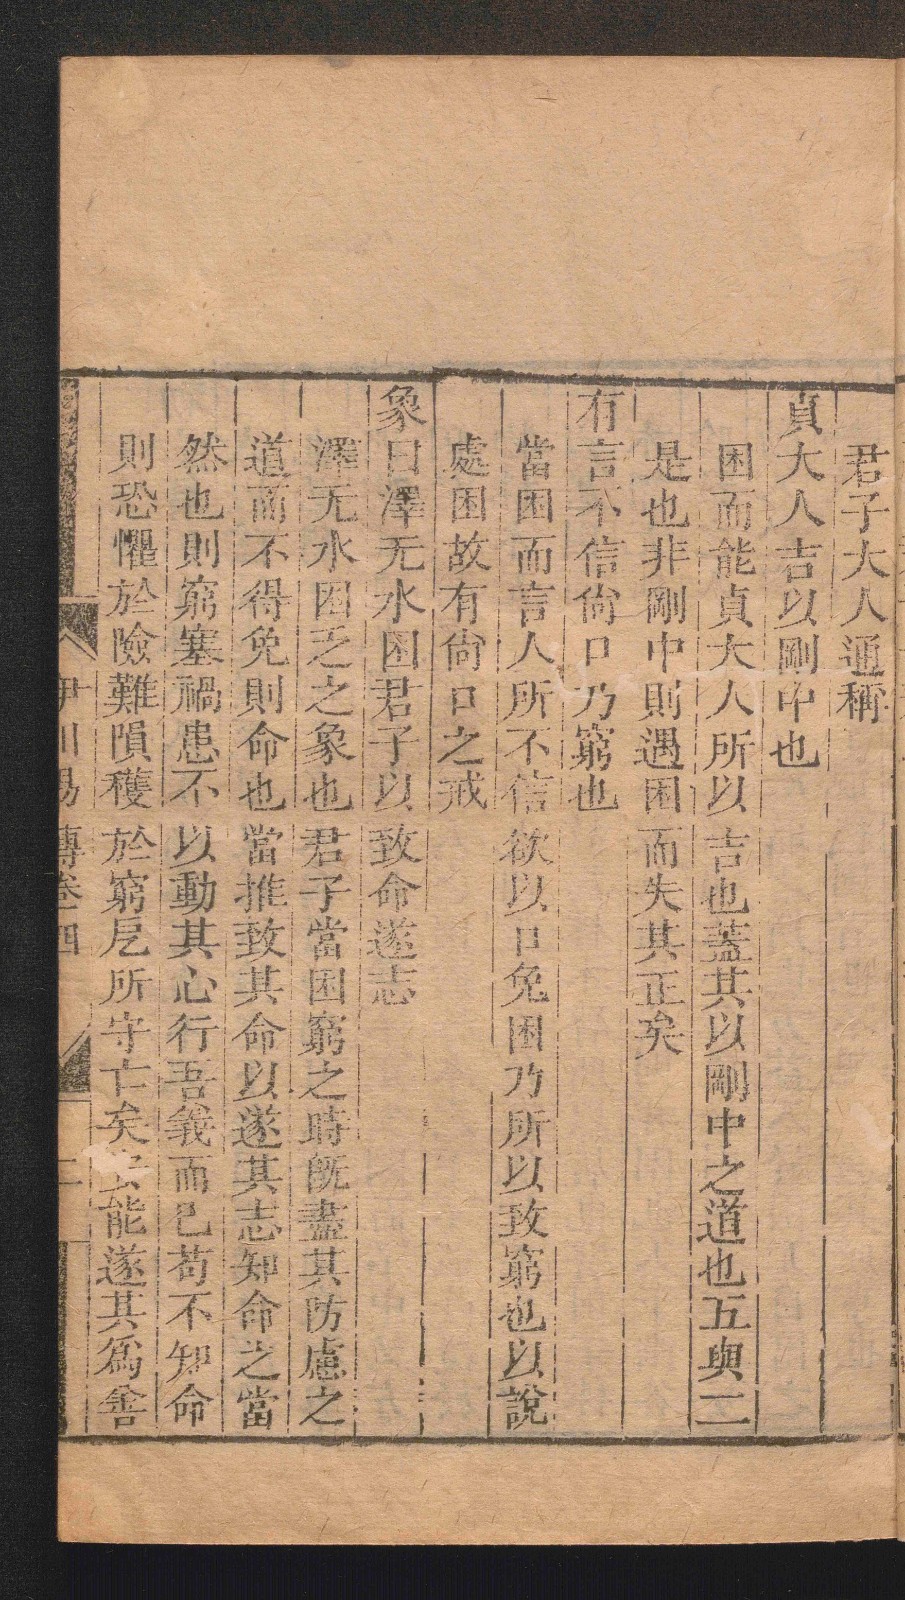 君子大人通稱
貞大人吉以剛中也
困而能貞大人所以吉也蓋其以剛中之道也五與二
是也非剛中則遇困而失其正矣
有言不信尙口乃窮也
當困而言人所不信欲以口免困乃所以致窮也以說
處困故有尙口之戒
象曰澤无水困君子以致命遂志
澤无水困乏之象也君子當困窮之時旣盡其防慮之
道而不得免則命也當推致其命以遂其志知命之當
然也則窮塞禍患不以動其心行吾義而已苟不知命
則恐懼於險難隕穫於窮戹所守亡矣安能遂其爲善
伊川易傳卷四 二